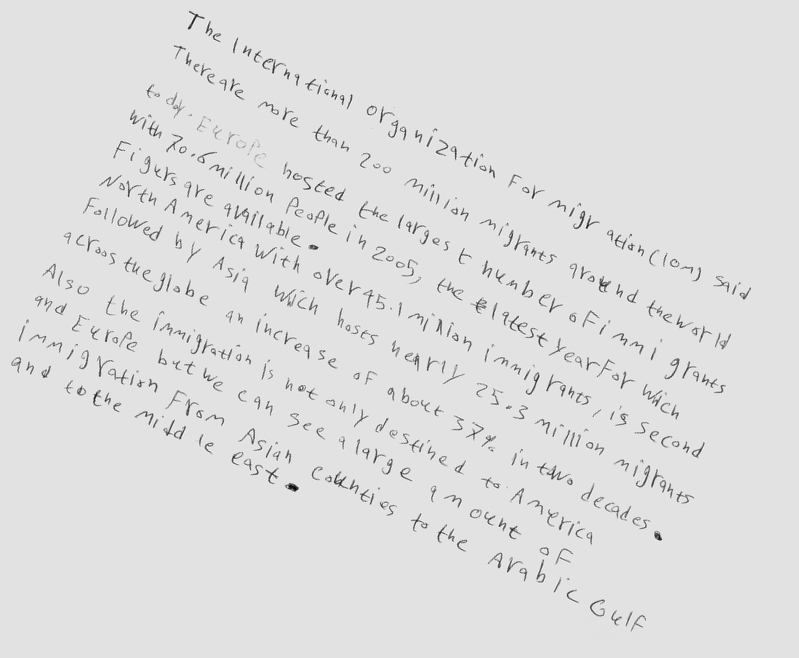 The International organization For migration (Iom) said
There are more than 200 million migrants around the world
today. Europe hosted the largest number oF immigrants
with 70.6 million People in 2005, the latest year For wich
Figurs are available.
North America with over 45.1 million immigrants, is second
Followed by Asia wich hosts nearly 25.3 million migrants
across the globe an increase of about 37% in two decades.
Also the immigration is not only destined to America
and Europe but we can see a large amount of
immigration From Asian counties to the Arabic Gulf
and to the middle east.